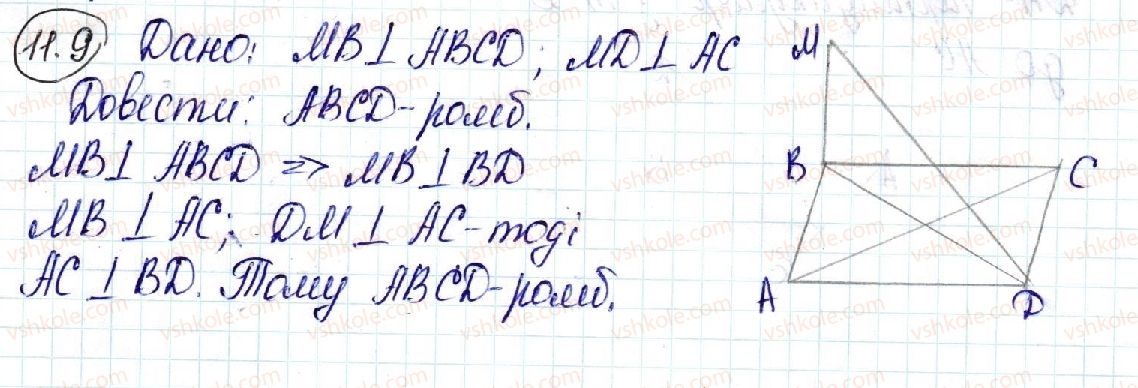 11.9 Дано: MB⊥ABCD; MD⊥AC
Довести: ABCD-ромб.
MB⊥ABCD => MB⊥BD
MB⊥AC; DM⊥AC-тоді
AC⊥BD. Тому ABCD-ромб.
M
B C
A D